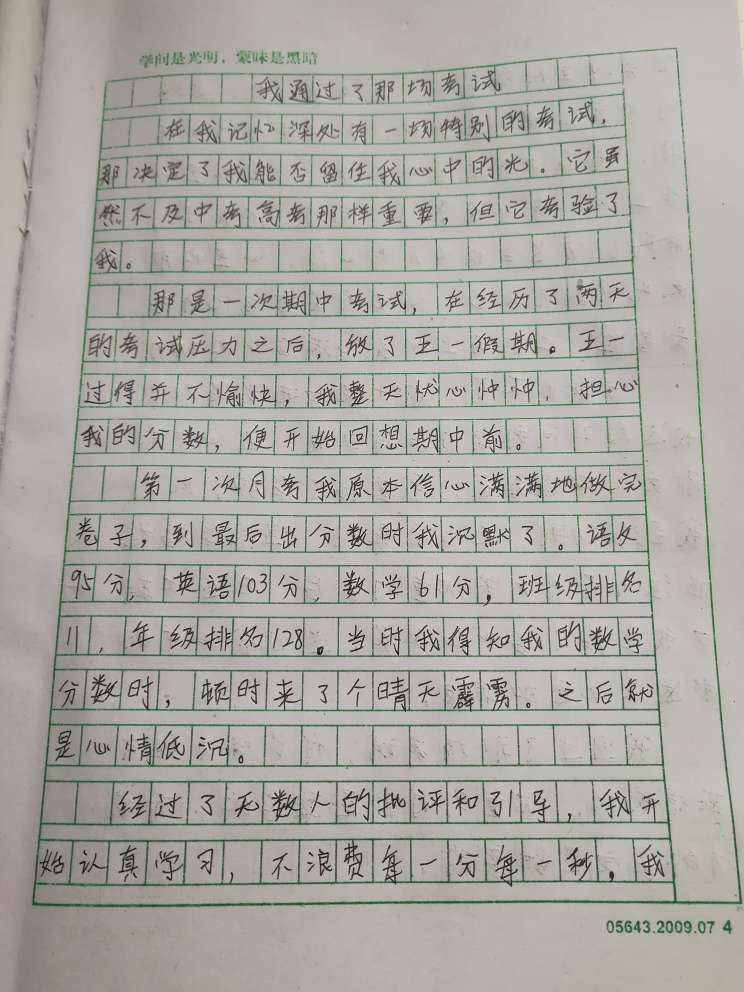 学问是光明，蒙昧是黑暗
我通过了那场考试
在我记忆深处有一场特别的考试，
那决定了我能否留住我心中的光。它虽
然不及中考高考那样重要，但它考验了
我。
那是一次期中考试，在经历了两天
的考试压力之后，放了五一假期。五一
过得并不愉快，我整天忧心忡忡，担心
我的分数，便开始回想期中前。
第一次月考我原本信心满满地做完
卷子，到最后出分数时我沉默了。语文
95分，英语103分，数学61分，班级排名
11，年级排名128。当时我得知我的数学
分数时，顿时来了个晴天霹雳。之后就
是心情低沉。
经过了无数人的批评和引导，我开
始认真学习，不浪费每一分每一秒，我
05643.2009.07 4